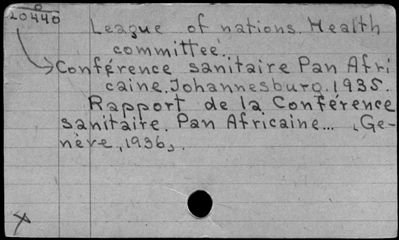 20440
League of nations. Health
committee.
Conférence sanitaire Pan Afri
caine. Johannesburg. 1935.
Rapport de la Conférence
sanitaire. Pan Africaine... Ge-
nève, 1936.